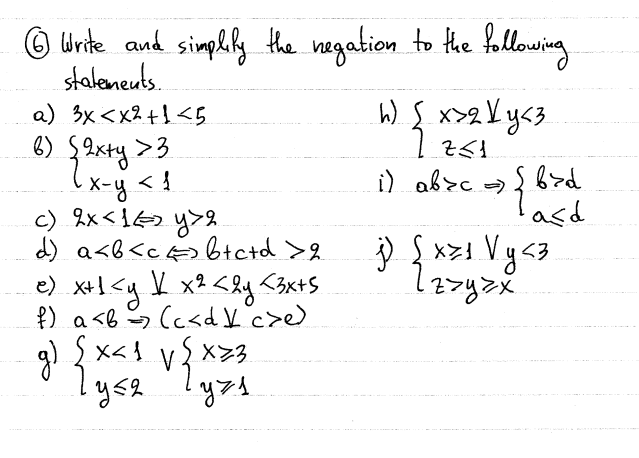 ⑥ Write and simplify the negation to the following
statements.
a) 3x < x2 + 1 < 5
b) { 2x+y > 3
x-y < 1
c) 2x < 1 ⇔ y > 2
d) a < b < c ⇔ b+c+d > 2
e) x+1 < y ⊻ x² < 2y < 3x+5
f) a < b ⇒ (c < d ⊻ c > e)
g) { x < 1 ∨ { x ⩾ 3
y ⩽ 2 y ⩾ 1
h) { x > 2 ⊻ y < 3
z ⩽ 1
i) ab > c ⇒ { b > d
a ⩽ d
j) { x ⩾ 1 ∨ y < 3
z > y ⩾ x